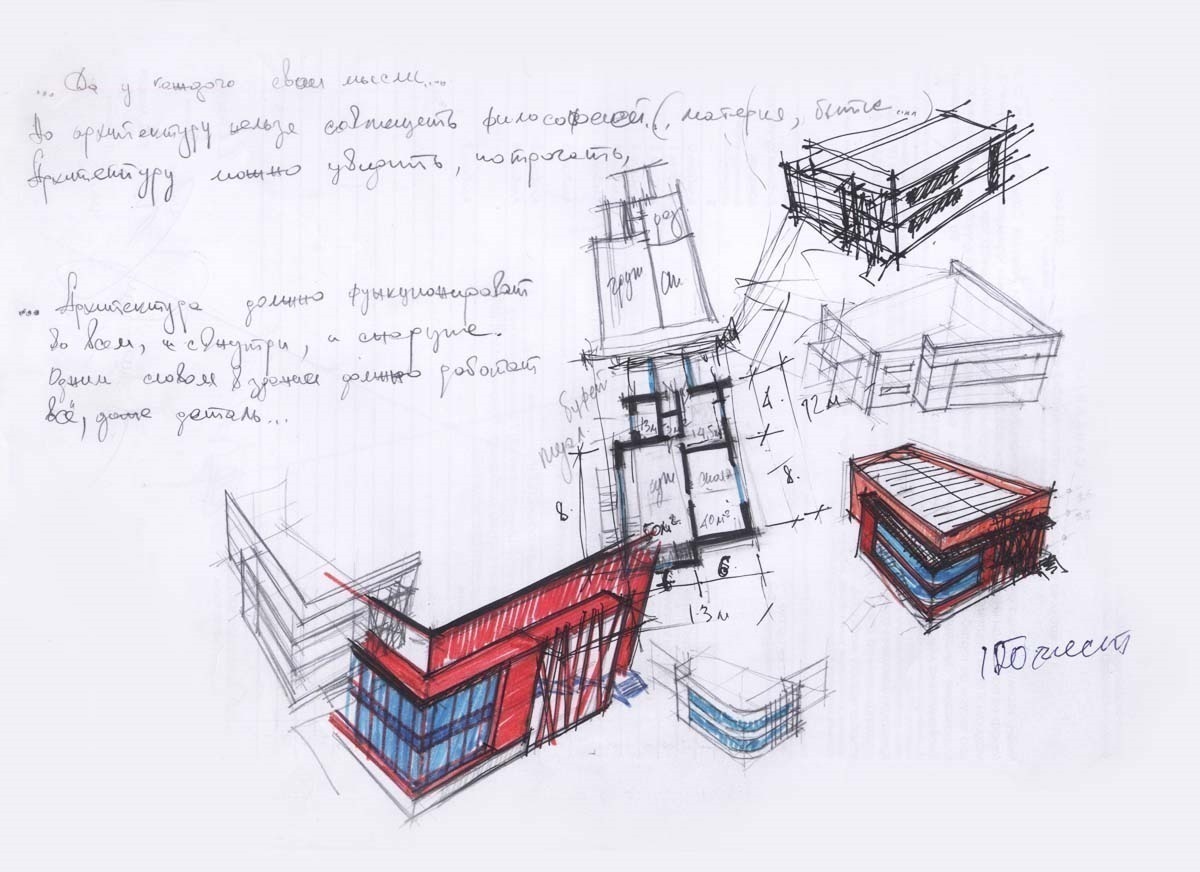 ... Да у каждого свои мысли....
Во архитектуру нельзя совмещать философией (, материя, бытие ....)
Архитектуру можно увидить, потрогать,
... Архитектура должно функционироват
во всем, и снутри, и снаруже.
Одним словом в здании должно работат
всё, даже деталь...
буфет
4
12 м
8
8
13 м
3 м
14,5 м
50 м²
40 м²
6
13 м
120 мест